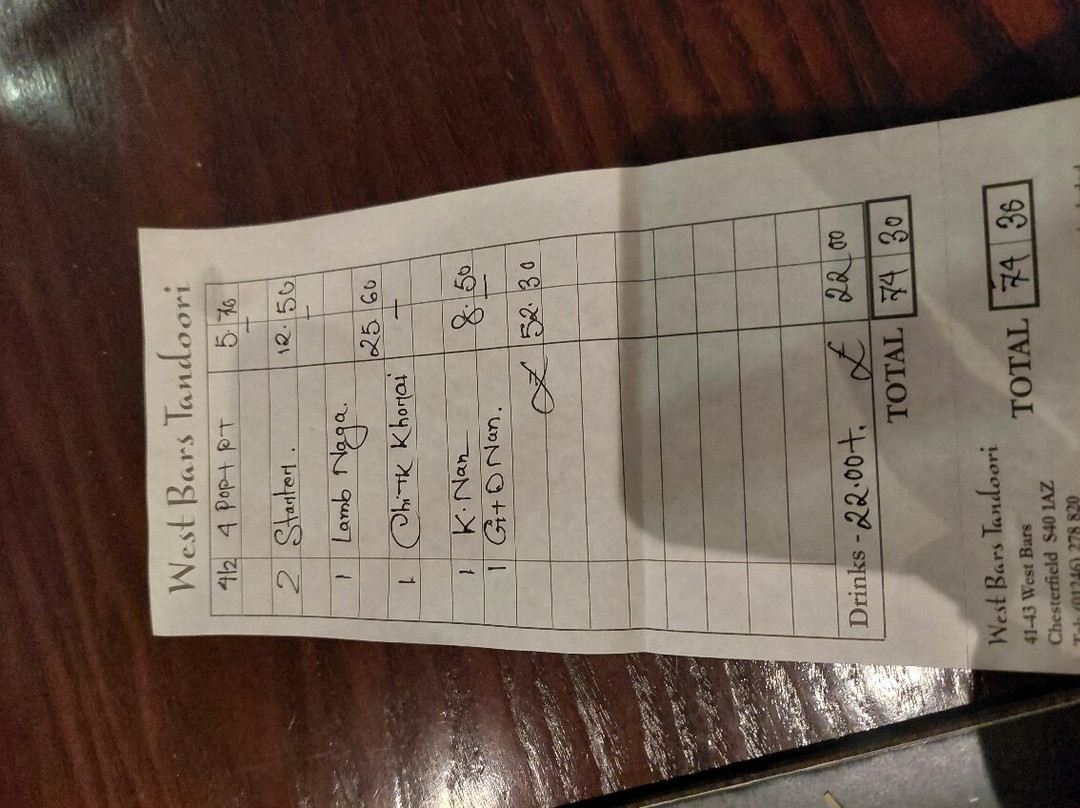 West Bars Tandoori
4/2 4 POP+ PT 5.70
2 Starter. 12.50
1 Lamb Naga.
25 60
1 Chi-TK Khorai
1 K. Nan 8.50
1 G+O Nan.
£ 52.30
Drinks - 22.00+. £ 22 00
TOTAL 74 30
TOTAL 74 36
West Bars Tandoori
41-43 West Bars
Chesterfield S40 1AZ
(01246) 278 820